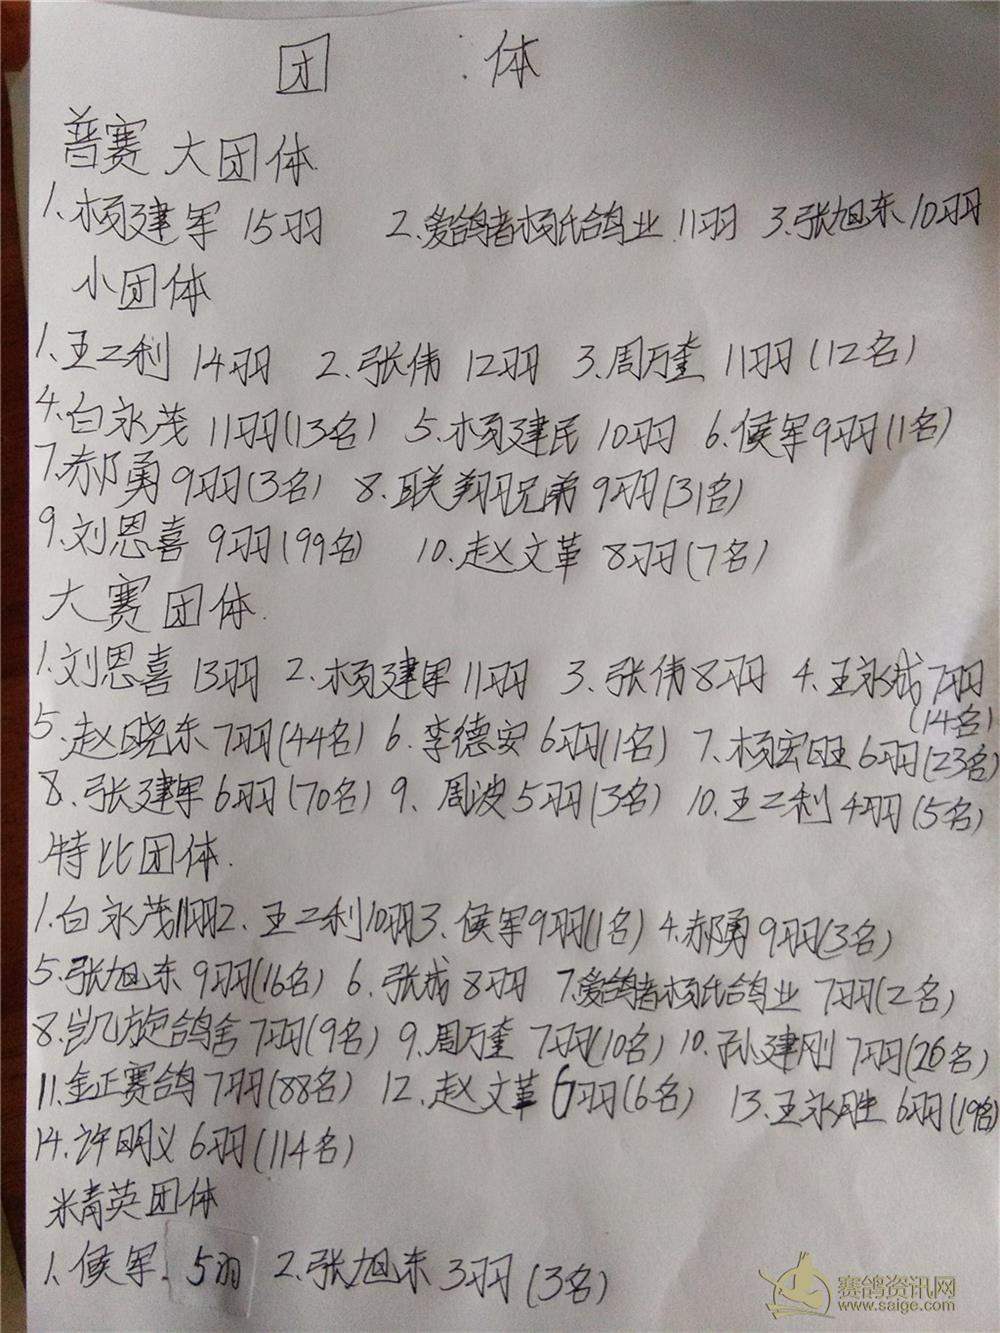 团 体
普赛大团体
1、杨建军 15羽 2、爱鸽者杨氏鸽业 11羽 3、张旭东 10羽
小团体
1、王二利 14羽 2、张伟 12羽 3、周万奎 11羽(12名)
4、白永茂 11羽(13名) 5、杨建民 10羽 6、侯军 9羽(1名)
7、郝勇 9羽(3名) 8、联翔兄弟 9羽(31名)
9、刘恩喜 9羽(99名) 10、赵文革 8羽(7名)
大赛团体
1、刘恩喜 13羽 2、杨建军 11羽 3、张伟 8羽 4、王永成 7羽
(14名)
5、赵晓东 7羽(44名) 6、李德安 6羽(1名) 7、杨宏旺 6羽(23名)
8、张建军 6羽(70名) 9、周波 5羽(3名) 10、王二利 4羽(5名)
特比团体
1、白永茂 11羽 2、王二利 10羽 3、侯军 9羽(1名) 4、郝勇 9羽(3名)
5、张旭东 9羽(16名) 6、张成 8羽 7、爱鸽者杨氏鸽业 7羽(2名)
8、凯旋鸽舍 7羽(9名) 9、周万奎 7羽(10名) 10、孙建刚 7羽(26名)
11、金正赛鸽 7羽(88名) 12、赵文革 6羽(6名) 13、王永胜 6羽(19名)
14、许明义 6羽(114名)
精英团体
1、侯军 5羽 2、张旭东 3羽(3名)
赛鸽资讯网
www.saige.com